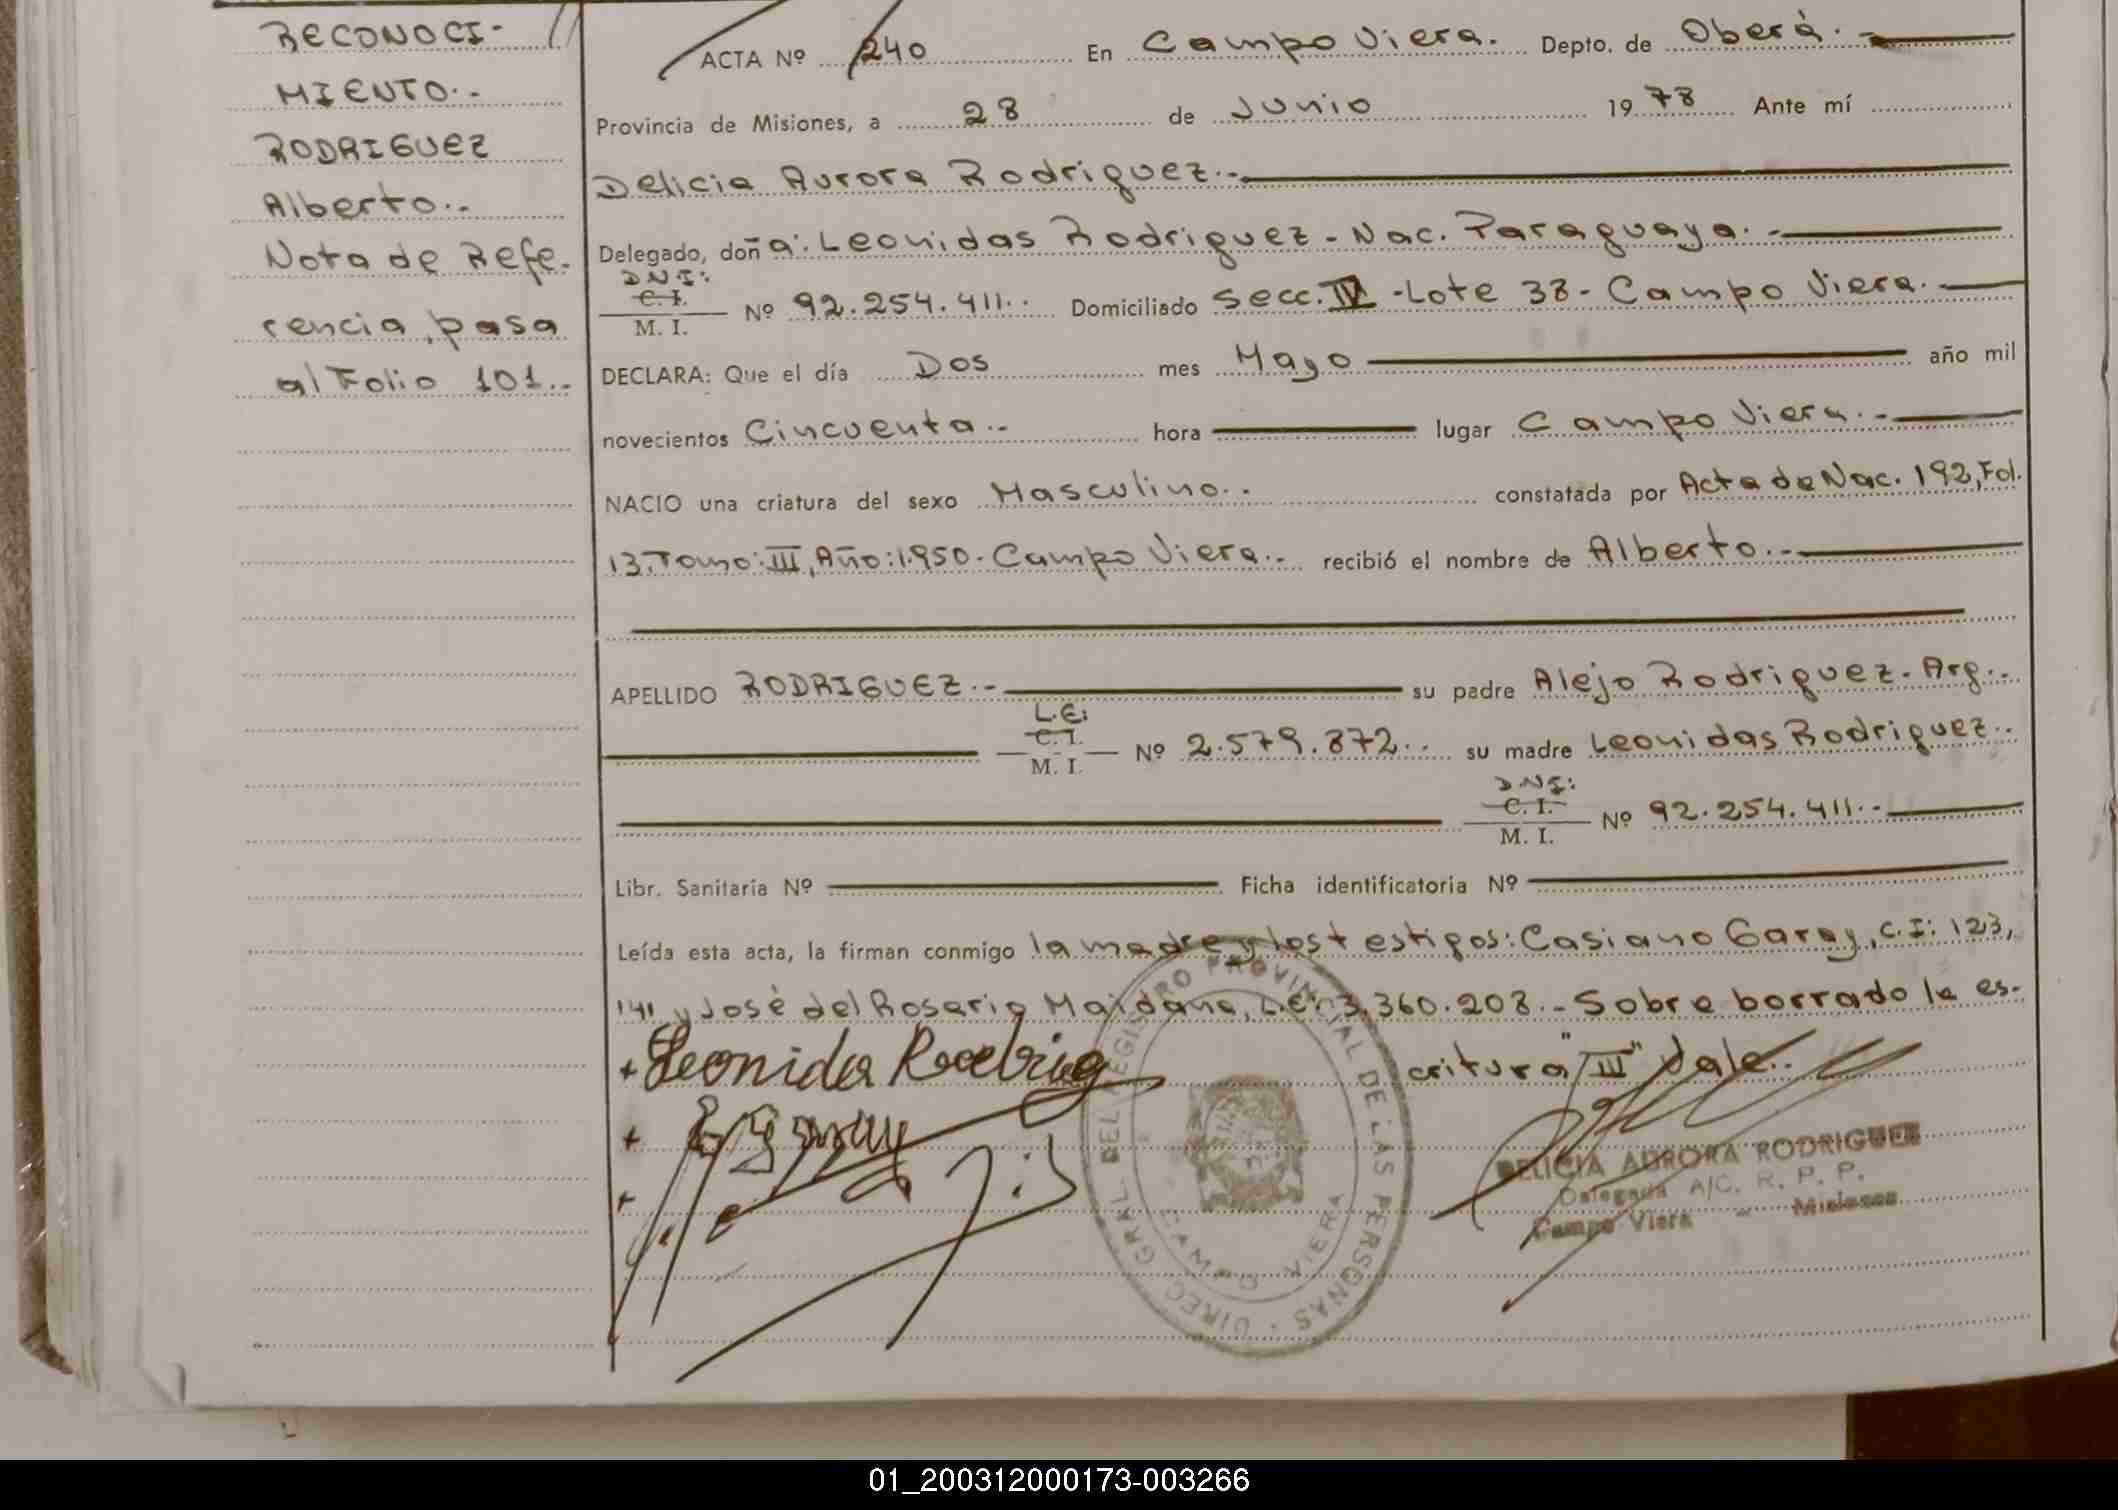 RECONOCI-
MIENTO.-
RODRIGUEZ
Alberto.-
Nota de Refe-
rencia, pasa
al Folio 101.-
ACTA Nº 240 En Campo Viera. Depto. de Oberá.-
Provincia de Misiones, a 28 de Junio 1978 Ante mí
Delicia Aurora Rodriguez.-
Delegado, doña: Leonidas Rodriguez - Nac. Paraguaya.-
D.N.I:
C. I.
M. I. Nº 92.254.411.. Domiciliado Secc. IV - Lote 38 - Campo Viera.-
DECLARA: Que el día Dos mes Mayo año mil
novecientos Cincuenta.- hora lugar Campo Viera.-
NACIO una criatura del sexo Masculino.. constatada por Acta de Nac. 192, Fol.
13. Tomo: III, Año: 1.950 - Campo Viera.- recibió el nombre de Alberto.-
APELLIDO RODRIGUEZ.- su padre Alejo Rodriguez - Arg.-
L.E:
C. I.
M. I. Nº 2.579.872.. su madre Leonidas Rodriguez..
D.N.I:
C. I.
M. I. Nº 92.254.411.-
Libr. Sanitaria Nº Ficha identificatoria Nº
Leída esta acta, la firman conmigo la madre y los testigos: Casiano Garay, C.I: 123,
141 y José del Rosario Maidana, L.E: 3.360.208.- Sobre borrado la es-
critura "III" Vale.-
+ Leonida
+
+
DIREC. GRAL. DEL REGISTRO PROVINCIAL DE LAS PERSONAS
CAMPO VIERA
DELICIA AURORA RODRIGUEZ
Delegada A/C. R. P. P.
Campo Viera - Misiones
01_200312000173-003266